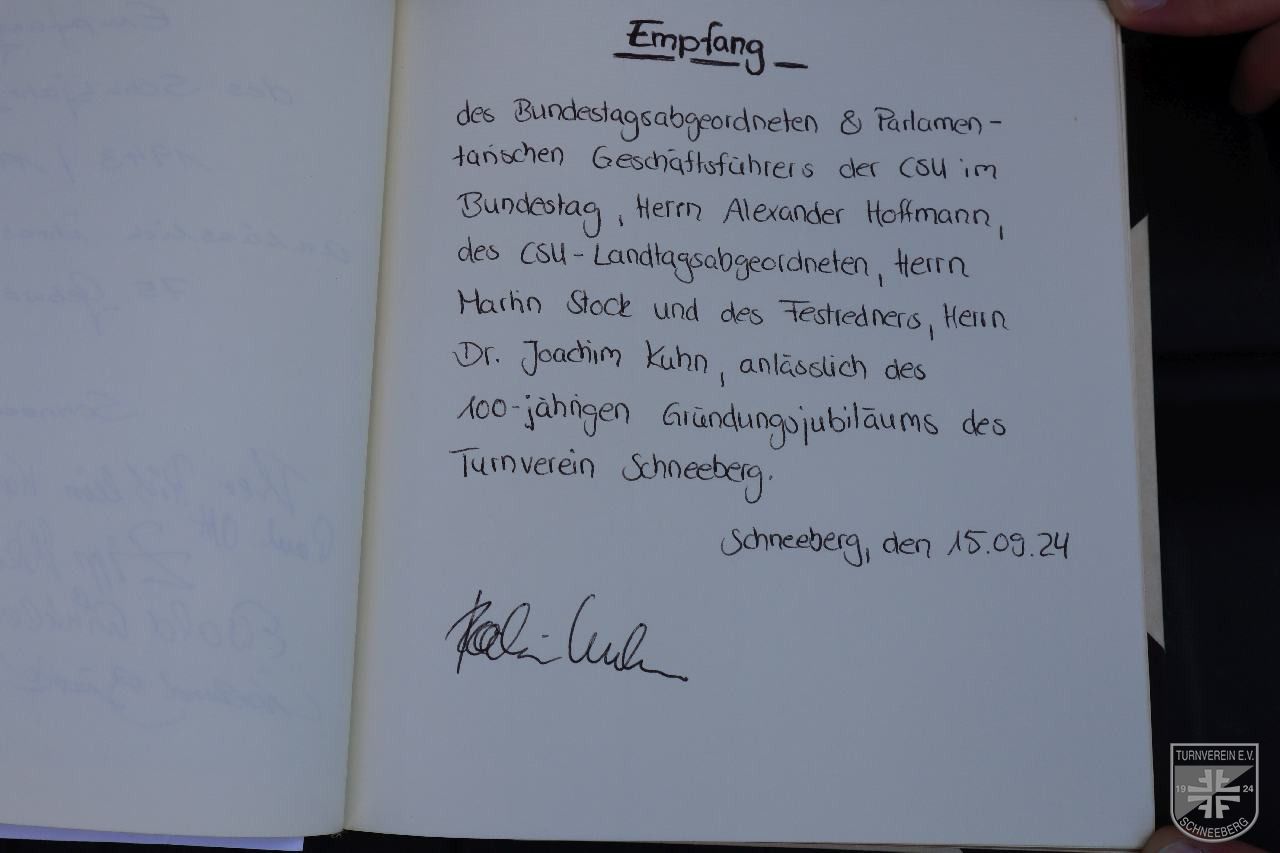 Empfang
des Bundestagsabgeordneten & Parlamen-
tarischen Geschäftsführers der CSU im
Bundestag, Herrn Alexander Hoffmann,
des CSU-Landtagsabgeordneten, Herrn
Martin Stock und des Festredners, Herrn
Dr. Joachim Kuhn, anlässlich des
100-jährigen Gründungsjubiläums des
Turnverein Schneeberg.
Schneeberg, den 15.09.24
TURNVEREIN E.V.
19 24
SCHNEEBERG